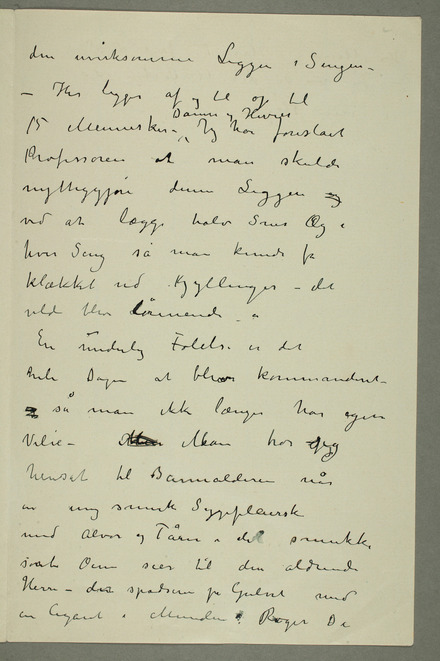 den uvirksomme Liggen i Sengen –
– Her ligger af og til op til
Damer og Herrer
15 Mennesker – Jeg har foreslået
Professoren at man skulde
nyttiggjøre denne Liggen
ved at lægge halv Snes Æg i
hver Seng så man kunde få
klækket ud Kyllinger – det
vilde blive lönnende –
En underlig Følelse er det
hele Dagen at blive kommanderet –
så man ikke længer har egen
Vilie – Man har
hensat til Barnealderen når
en ung smuk Sygeplejerske
med Alvor og Tårer i de smukke
sorte Øine sier til den aldrende
Herre – spadsere på Gulvet med
en Cigaret i Munden